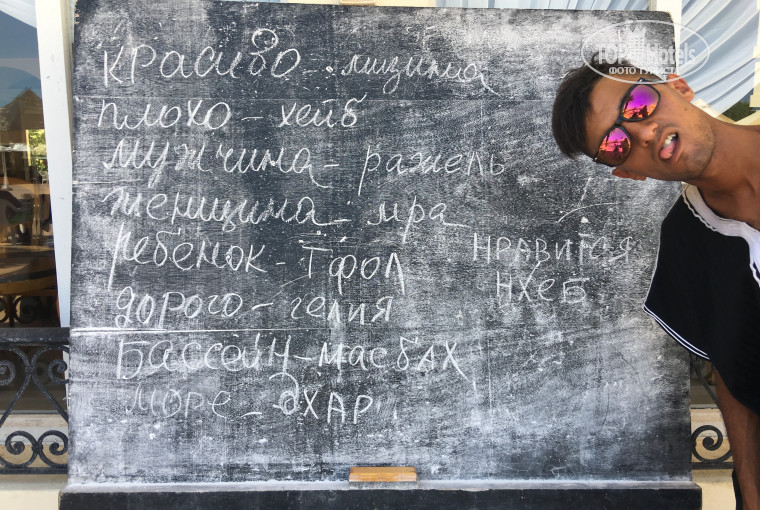 TopHotels
ФОТО ТУРИСТА
красиво - мизияна
плохо - хейб
мужчина - ражель
женщина - мра
ребёнок - Тфол
НРАВИТСЯ
дорого - гелия
НХЕБ
Бассейн - масбах
море - БХАР